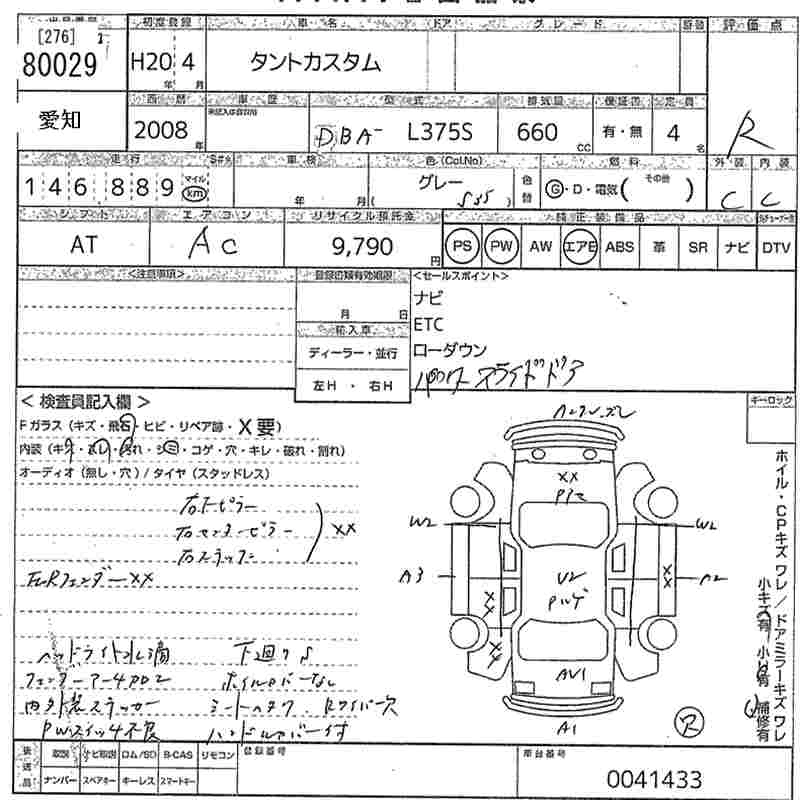 [276]
80029
初度登録
H20 4
年 月
車名
ドア
グレード
評価点
タントカスタム
R
愛知
西暦
2008
年
車歴
型式
DBA- L375S
排気量
660
CC
保証書
有・無
定員
4
名
走行
146,889
マイル
km
車検
年 月
色(Col.No)
グレー
S35
色替
燃料
G・D・電気( その他 )
外装
C
内装
C
シフト
AT
エアコン
AC
リサイクル預託金
9,790
円
純正装備品
PS PW AW エアB ABS 革 SR ナビ DTV
<注意事項>
登録書類有効期限
月 日
輸入車
ディーラー・並行
左H・右H
<セールスポイント>
ナビ
ETC
ローダウン
パワースライドドア
キーロック
< 検査員記入欄 >
Fガラス (キズ・飛石・ヒビ・リペア跡・X要)
内装 (キズ・汚れ・シミ・コゲ・穴・キレ・破れ・割れ)
オーディオ (無し・穴) / タイヤ (スタッドレス)
右Fピラー
右センターピラー XX
右ステップ
XX
ヘッドライト水滴 下廻りS
ホイルカバーなし
内外装ステッカー
PWスイッチ不良 ハンドルカバー付
XX
W2 W2
A3 U2 XX A2
XX
XX
AU1
A1
R
ホイル・CPキズ ワレ / ドアミラーキズ ワレ
小キズ有 小凹有 補修有
後送品
取説 ナビ取説 ロム/SD B-CAS リモコン
ナンバー スペアキー キーレス スマートキー
登録番号
車台番号
0041433